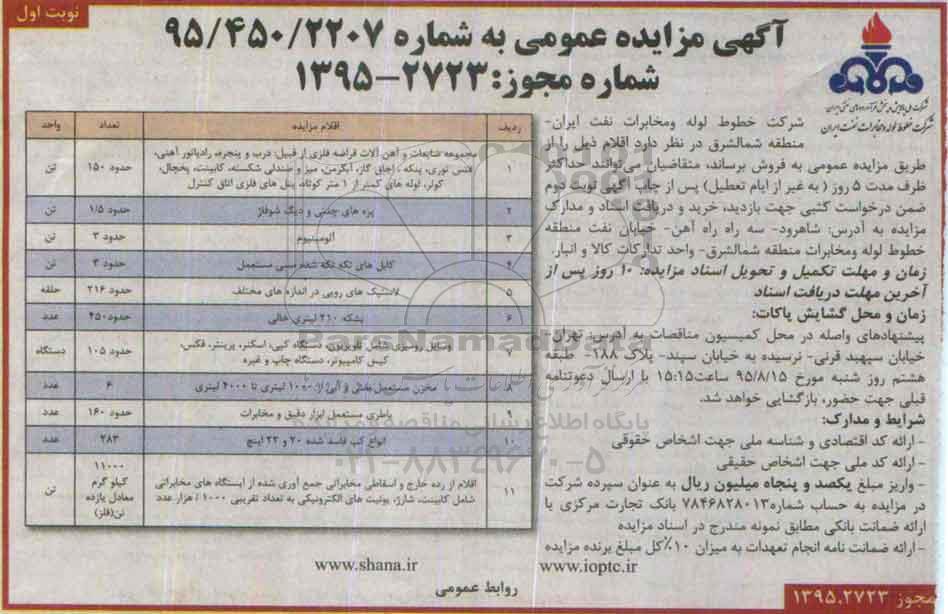 نوبت اول
آگهی مزایده عمومی به شماره ۹۵/۴۵۰/۲۲۰۷
شماره مجوز: ۲۷۲۳-۱۳۹۵
شرکت ملی پالایش و پخش فرآورده‌های نفتی ایران
شرکت خطوط لوله و مخابرات نفت ایران
شرکت خطوط لوله ومخابرات نفت ایران-
منطقه شمالشرق در نظر دارد اقلام ذیل را از
طریق مزایده عمومی به فروش برساند، متقاضیان می‌توانند حداکثر
ظرف مدت ۵ روز ( به غیر از ایام تعطیل) پس از چاپ آگهی نوبت دوم
ضمن درخواست کتبی جهت بازدید، خرید و دریافت اسناد و مدارک
مزایده به آدرس: شاهرود- سه راه راه آهن- خیابان نفت منطقه
خطوط لوله ومخابرات منطقه شمالشرق- واحد تدارکات کالا و انبار.
زمان و مهلت تکمیل و تحویل اسناد مزایده: ۱۰ روز پس از
آخرین مهلت دریافت اسناد
زمان و محل گشایش پاکات:
پیشنهادهای واصله در محل کمیسیون مناقصات به آدرس: تهران-
خیابان سپهبد قرنی- نرسیده به خیابان سپند- پلاک ۱۸۸- طبقه
هشتم روز شنبه مورخ ۹۵/۸/۱۵ ساعت۱۵:۱۵ با ارسال دعوتنامه
قبلی جهت حضور، بازگشایی خواهد شد.
شرایط و مدارک:
- ارائه کد اقتصادی و شناسه ملی جهت اشخاص حقوقی
- ارائه کد ملی جهت اشخاص حقیقی
- واریز مبلغ یکصد و پنجاه میلیون ریال به عنوان سپرده شرکت
در مزایده به حساب شماره۷۸۴۶۸۲۸۰۱۳ بانک تجارت مرکزی یا
ارائه ضمانت بانکی مطابق نمونه مندرج در اسناد مزایده
- ارائه ضمانت نامه انجام تعهدات به میزان ۱۰٪کل مبلغ برنده مزایده
ردیف اقلام مزایده تعداد واحد
۱ مجموعه ضایعات و آهن آلات قراضه فلزی از قبیل: درب و پنجره، رادیاتور آهنی،
فنس توری، پنکه ، اجاق گاز، آبگرمن، میز و صندلی شکسته، کابینت، یخچال،
کولر، لوله های کمتر از ۱ متر کوتاه، پنل های فلزی اتاق کنترل حدود ۱۵۰ تن
۲ پره های چدنی و دیگ شوفاژ حدود ۱/۵ تن
۳ آلومینیوم حدود ۳ تن
۴ کابل های تکه تکه شده مسی مستعمل حدود ۳ تن
۵ لاستیک های رویی در اندازه های مختلف حدود ۲۱۶ حلقه
۶ بشکه ۲۱۰ لیتری خالی حدود۴۵۰ عدد
۷ وسایل رومیزی شامل تلویزیون، دستگاه کپی، اسکنر، پرینتر، فکس،
کیس کامپیوتر، دستگاه چاپ و غیره حدود ۱۰۵ دستگاه
۸ مخزن مستعمل نفتی و آبی از ۱۰۰۰ لیتری تا ۴۰۰۰ لیتری ۶ عدد
۹ باطری مستعمل ابزار دقیق و مخابرات حدود ۱۶۰ عدد
۱۰ انواع کپ فاسد شده ۲۰ و ۲۲ اینچ ۲۸۳ عدد
۱۱ اقلام از رده خارج و اسقاطی مخابراتی جمع آوری شده از ایستگاه های مخابراتی
شامل کابینت، شارژر، یونیت های الکترونیکی به تعداد تقریبی ۱۰۰۰ / هزار عدد ۱۱۰۰۰
کیلو گرم
معادل یازده
تن(فلز) تن
ParsNamadData
پایگاه اطلاع رسانی مناقصه و مزایده
۰۲۱-۸۸۳۴۹۶۷۰-۵
www.shana.ir
www.ioptc.ir
روابط عمومی
مجوز ۱۳۹۵.۲۷۲۳